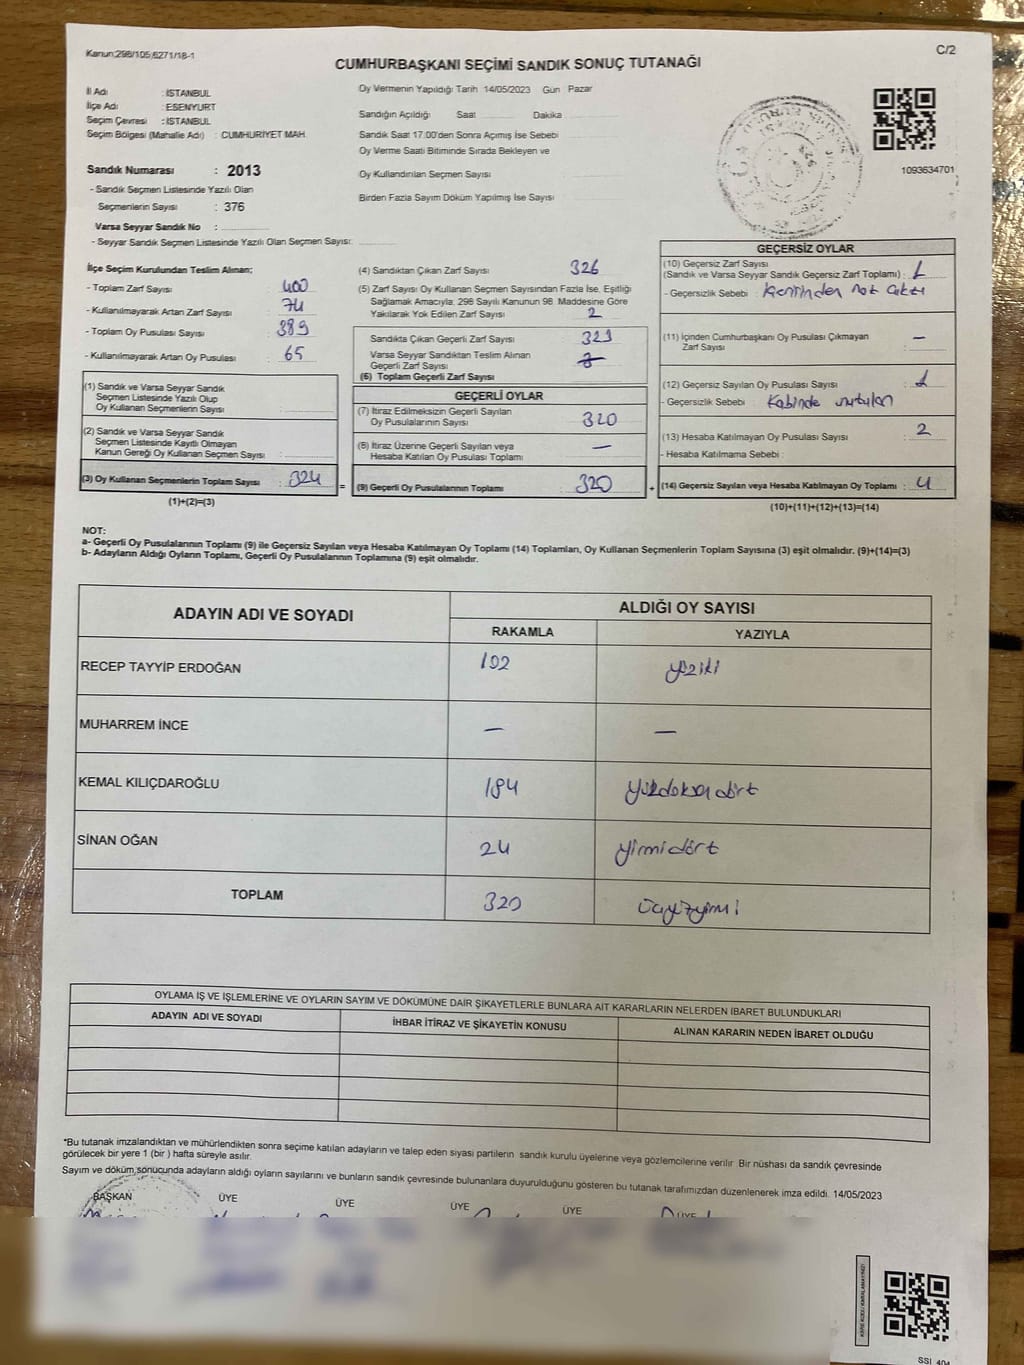 Kanun;298/105;6271/18-1
C/2
CUMHURBAŞKANI SEÇİMİ SANDIK SONUÇ TUTANAĞI
İl Adı : İSTANBUL
İlçe Adı : ESENYURT
Seçim Çevresi : İSTANBUL
Seçim Bölgesi (Mahalle Adı) : CUMHURİYET MAH.
Sandık Numarası : 2013
- Sandık Seçmen Listesinde Yazılı Olan
Seçmenlerin Sayısı : 376
Varsa Seyyar Sandık No :
- Seyyar Sandık Seçmen Listesinde Yazılı Olan Seçmen Sayısı:
Oy Vermenin Yapıldığı Tarih 14/05/2023 Gün Pazar
Sandığın Açıldığı Saat Dakika
Sandık Saat 17.00'den Sonra Açımış İse Sebebi
Oy Verme Saati Bitiminde Sırada Bekleyen ve
Oy Kullandırılan Seçmen Sayısı
Birden Fazla Sayım Döküm Yapılmış İse Sayısı
1093634701
İlçe Seçim Kurulundan Teslim Alınan;
- Toplam Zarf Sayısı : 400
- Kullanılmayarak Artan Zarf Sayısı : 74
- Toplam Oy Pusulası Sayısı : 389
- Kullanılmayarak Artan Oy Pusulası : 65
(1) Sandık ve Varsa Seyyar Sandık
Seçmen Listesinde Yazılı Olup
Oy Kullanan Seçmenlerin Sayısı :
(2) Sandık ve Varsa Seyyar Sandık
Seçmen Listesinde Kayıtlı Olmayan
Kanun Gereği Oy Kullanan Seçmen Sayısı :
(3) Oy Kullanan Seçmenlerin Toplam Sayısı : 324
(1)+(2)=(3)
(4) Sandıktan Çıkan Zarf Sayısı 326
(5) Zarf Sayısı Oy Kullanan Seçmen Sayısından Fazla İse, Eşitliği
Sağlamak Amacıyla, 298 Sayılı Kanunun 98. Maddesine Göre
Yakılarak Yok Edilen Zarf Sayısı 2
Sandıkta Çıkan Geçerli Zarf Sayısı 323
Varsa Seyyar Sandıktan Teslim Alınan
Geçerli Zarf Sayısı
(6) Toplam Geçerli Zarf Sayısı
GEÇERLİ OYLAR
(7) İtiraz Edilmeksizin Geçerli Sayılan
Oy Pusulalarının Sayısı 320
(8) İtiraz Üzerine Geçerli Sayılan veya
Hesaba Katılan Oy Pusulası Toplamı —
= (9) Geçerli Oy Pusulalarının Toplamı 320 +
GEÇERSİZ OYLAR
(10) Geçersiz Zarf Sayısı
(Sandık ve Varsa Seyyar Sandık Geçersiz Zarf Toplamı) : 1
- Geçersizlik Sebebi : içerisinden not çıktı
(11) İçinden Cumhurbaşkanı Oy Pusulası Çıkmayan
Zarf Sayısı : —
(12) Geçersiz Sayılan Oy Pusulası Sayısı : 1
- Geçersizlik Sebebi : Kabinde unutulan
(13) Hesaba Katılmayan Oy Pusulası Sayısı : 2
- Hesaba Katılmama Sebebi :
(14) Geçersiz Sayılan veya Hesaba Katılmayan Oy Toplamı : 4
(10)+(11)+(12)+(13)=(14)
NOT:
a- Geçerli Oy Pusulalarının Toplamı (9) ile Geçersiz Sayılan veya Hesaba Katılmayan Oy Toplamı (14) Toplamları, Oy Kullanan Seçmenlerin Toplam Sayısına (3) eşit olmalıdır. (9)+(14)=(3)
b- Adayların Aldığı Oyların Toplamı, Geçerli Oy Pusulalarının Toplamına (9) eşit olmalıdır.
ADAYIN ADI VE SOYADI
ALDIĞI OY SAYISI
RAKAMLA YAZIYLA
RECEP TAYYİP ERDOĞAN 102 yüziki
MUHARREM İNCE — —
KEMAL KILIÇDAROĞLU 194 yüzdoksandört
SİNAN OĞAN 24 yirmidört
TOPLAM 320 üçyüzyirmi
OYLAMA İŞ VE İŞLEMLERİNE VE OYLARIN SAYIM VE DÖKÜMÜNE DAİR ŞİKAYETLERLE BUNLARA AİT KARARLARIN NELERDEN İBARET BULUNDUKLARI
ADAYIN ADI VE SOYADI İHBAR İTİRAZ VE ŞİKAYETİN KONUSU ALINAN KARARIN NEDEN İBARET OLDUĞU
*Bu tutanak imzalandıktan ve mühürlendikten sonra seçime katılan adayların ve talep eden siyasi partilerin sandık kurulu üyelerine veya gözlemcilerine verilir. Bir nüshası da sandık çevresinde
görülecek bir yere 1 (bir ) hafta süreyle asılır.
Sayım ve döküm sonucunda adayların aldığı oyların sayılarını ve bunların sandık çevresinde bulunanlara duyurulduğunu gösteren bu tutanak tarafımızdan düzenlenerek imza edildi. 14/05/2023
BAŞKAN ÜYE ÜYE ÜYE ÜYE ÜYE